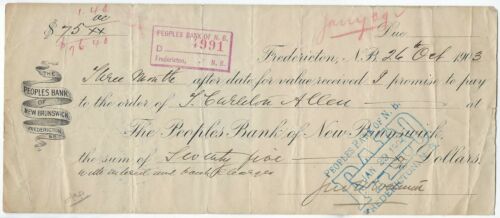 1.40
$ 75 00/xx
$76 40
PEOPLES BANK OF N. B.
D 4991
Fredericton, N. B.
Due
Fredericton, N.B. 26th Oct 1903
Three Months after date for value received I promise to pay
to the order of T. Carleton Allen at
THE PEOPLES BANK OF NEW BRUNSWICK FREDERICTON N.B.
The Peoples Bank of New Brunswick,
the sum of Seventy five Dollars.
with interest and bank charges
PEOPLES BANK OF N. B.
PAID
JAN 29
FREDERICTON, N.B.